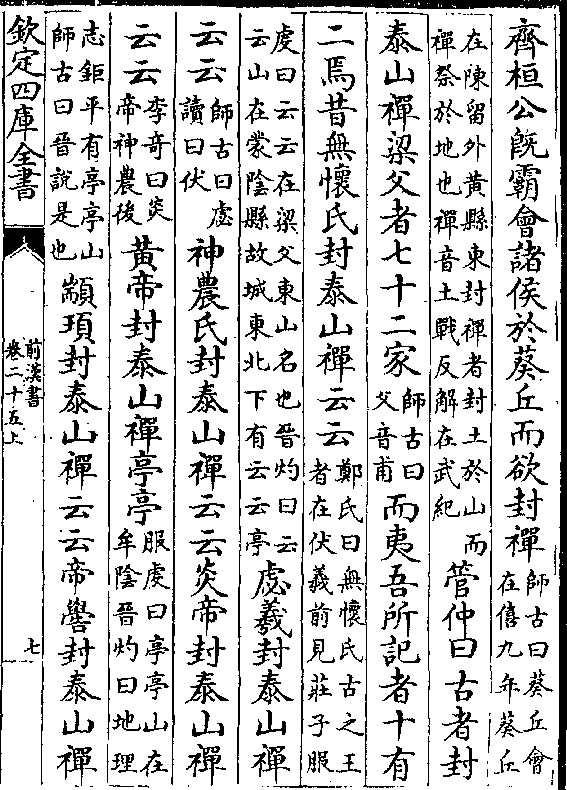 齊桓公旣霸會諸侯於葵丘而欲封禪師古曰葵丘會在僖九年葵丘
在陳留外黄縣東封禪者封土於山而禪祭於地也禪音土戰反解在武紀管仲曰古者封
泰山禪梁父者七十二家師古曰父音甫而夷吾所記者十有
二焉昔無懷氏封泰山禪云云鄭氏曰無懷氏古之王者在伏羲前見莊子服
虔曰云云在梁父東山名也晉灼曰云云山在蒙陰縣故城東北下有云云亭虙羲封泰山禪
云云師古曰虙讀曰伏神農氏封泰山禪云云炎帝封泰山禪
云云李奇曰炎帝神農後黃帝封泰山禪亭亭服虔曰亭亭山在牟陰晉灼曰地理
志鉅平有亭亭山師古曰晉說是也顓頊封泰山禪云云帝嚳封泰山禪
欽定四庫全書
前漢書
卷二十五上
七